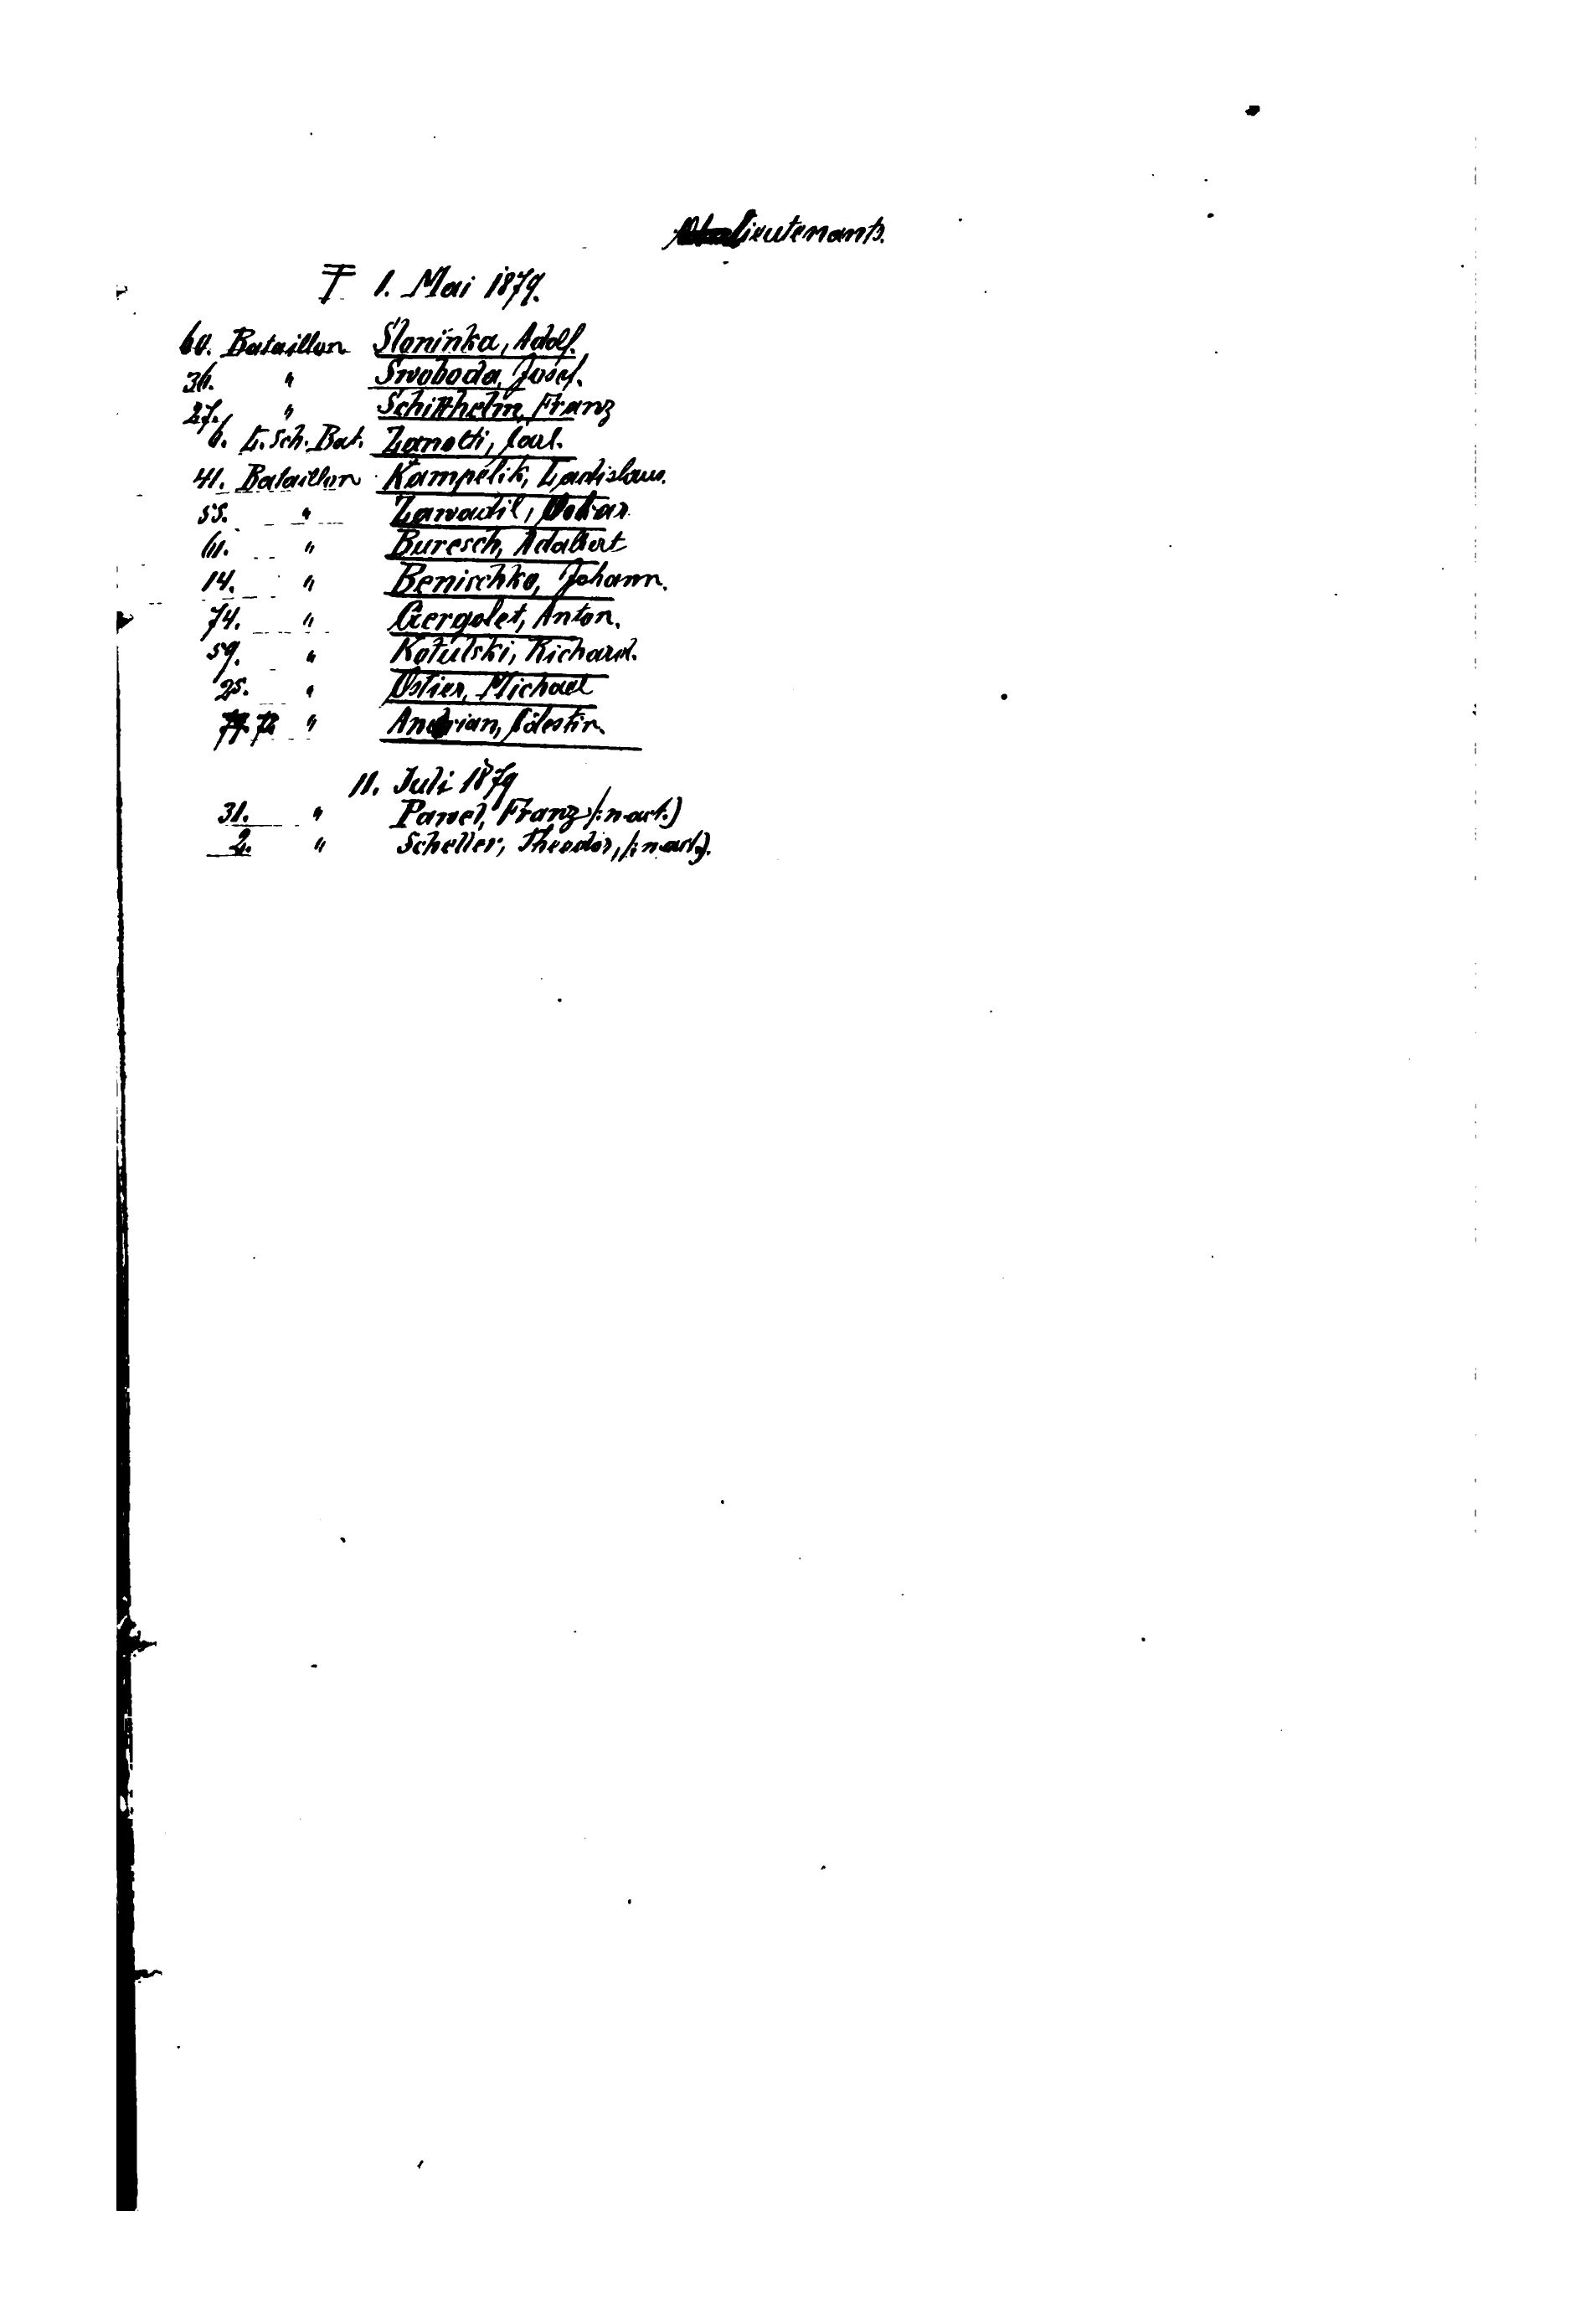 Lieutenants.
1. Mai 1879.
60. Bataillon Sloninka, Adolf.
36. " Swoboda, Josef.
27. " Schiffhelm, Franz
6. L. Sch. Bat. Zanotti, Carl.
41. Bataillon Kampelik, Ladislaus.
55. " Zawadil, Oskar
61. " Buresch, Adalbert
14. " Benischko, Johann.
74. " Gergolet, Anton.
59. " Kotulski, Richard.
25. " Ostier, Michael
72 " Andrian, Cölestin.
11. Juli 1879
31. " Pawel, Franz (:n. act.)
2. " Scheller, Theodor, (:n. act.).